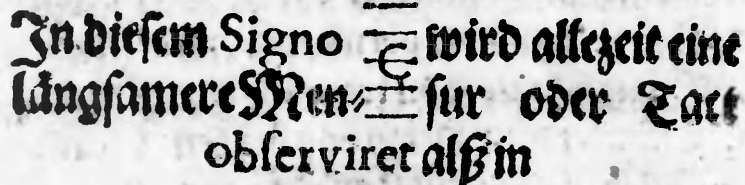 In diesem Signo wird allezeit eine
langsamere Men- sur oder Tact
observiret alß in